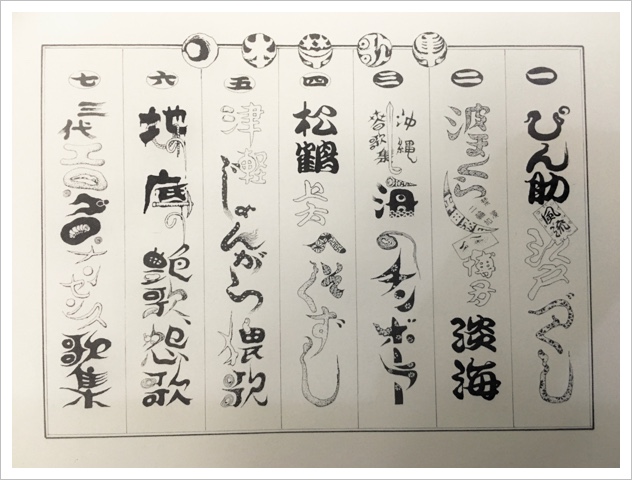 日本禁歌集
一 ぴん助風流江戸づくし
二 波まくら博多淡海
三 沖縄春歌集 海のチンボーラー
四 松鶴上方へそくずし
五 津軽じょんがら猥歌
六 地の庭艶歌、怨歌
七 三代エロ・グロ・ナンセンス歌集